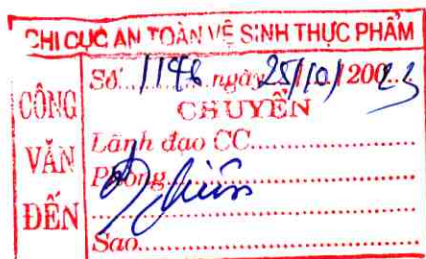 CHI CỤC AN TOÀN VỆ SINH THỰC PHẨM
CÔNG VĂN ĐẾN
Số 1146 ngày 25/10/2023
CHUYỂN
Lãnh đạo CC
Phòng
Sao